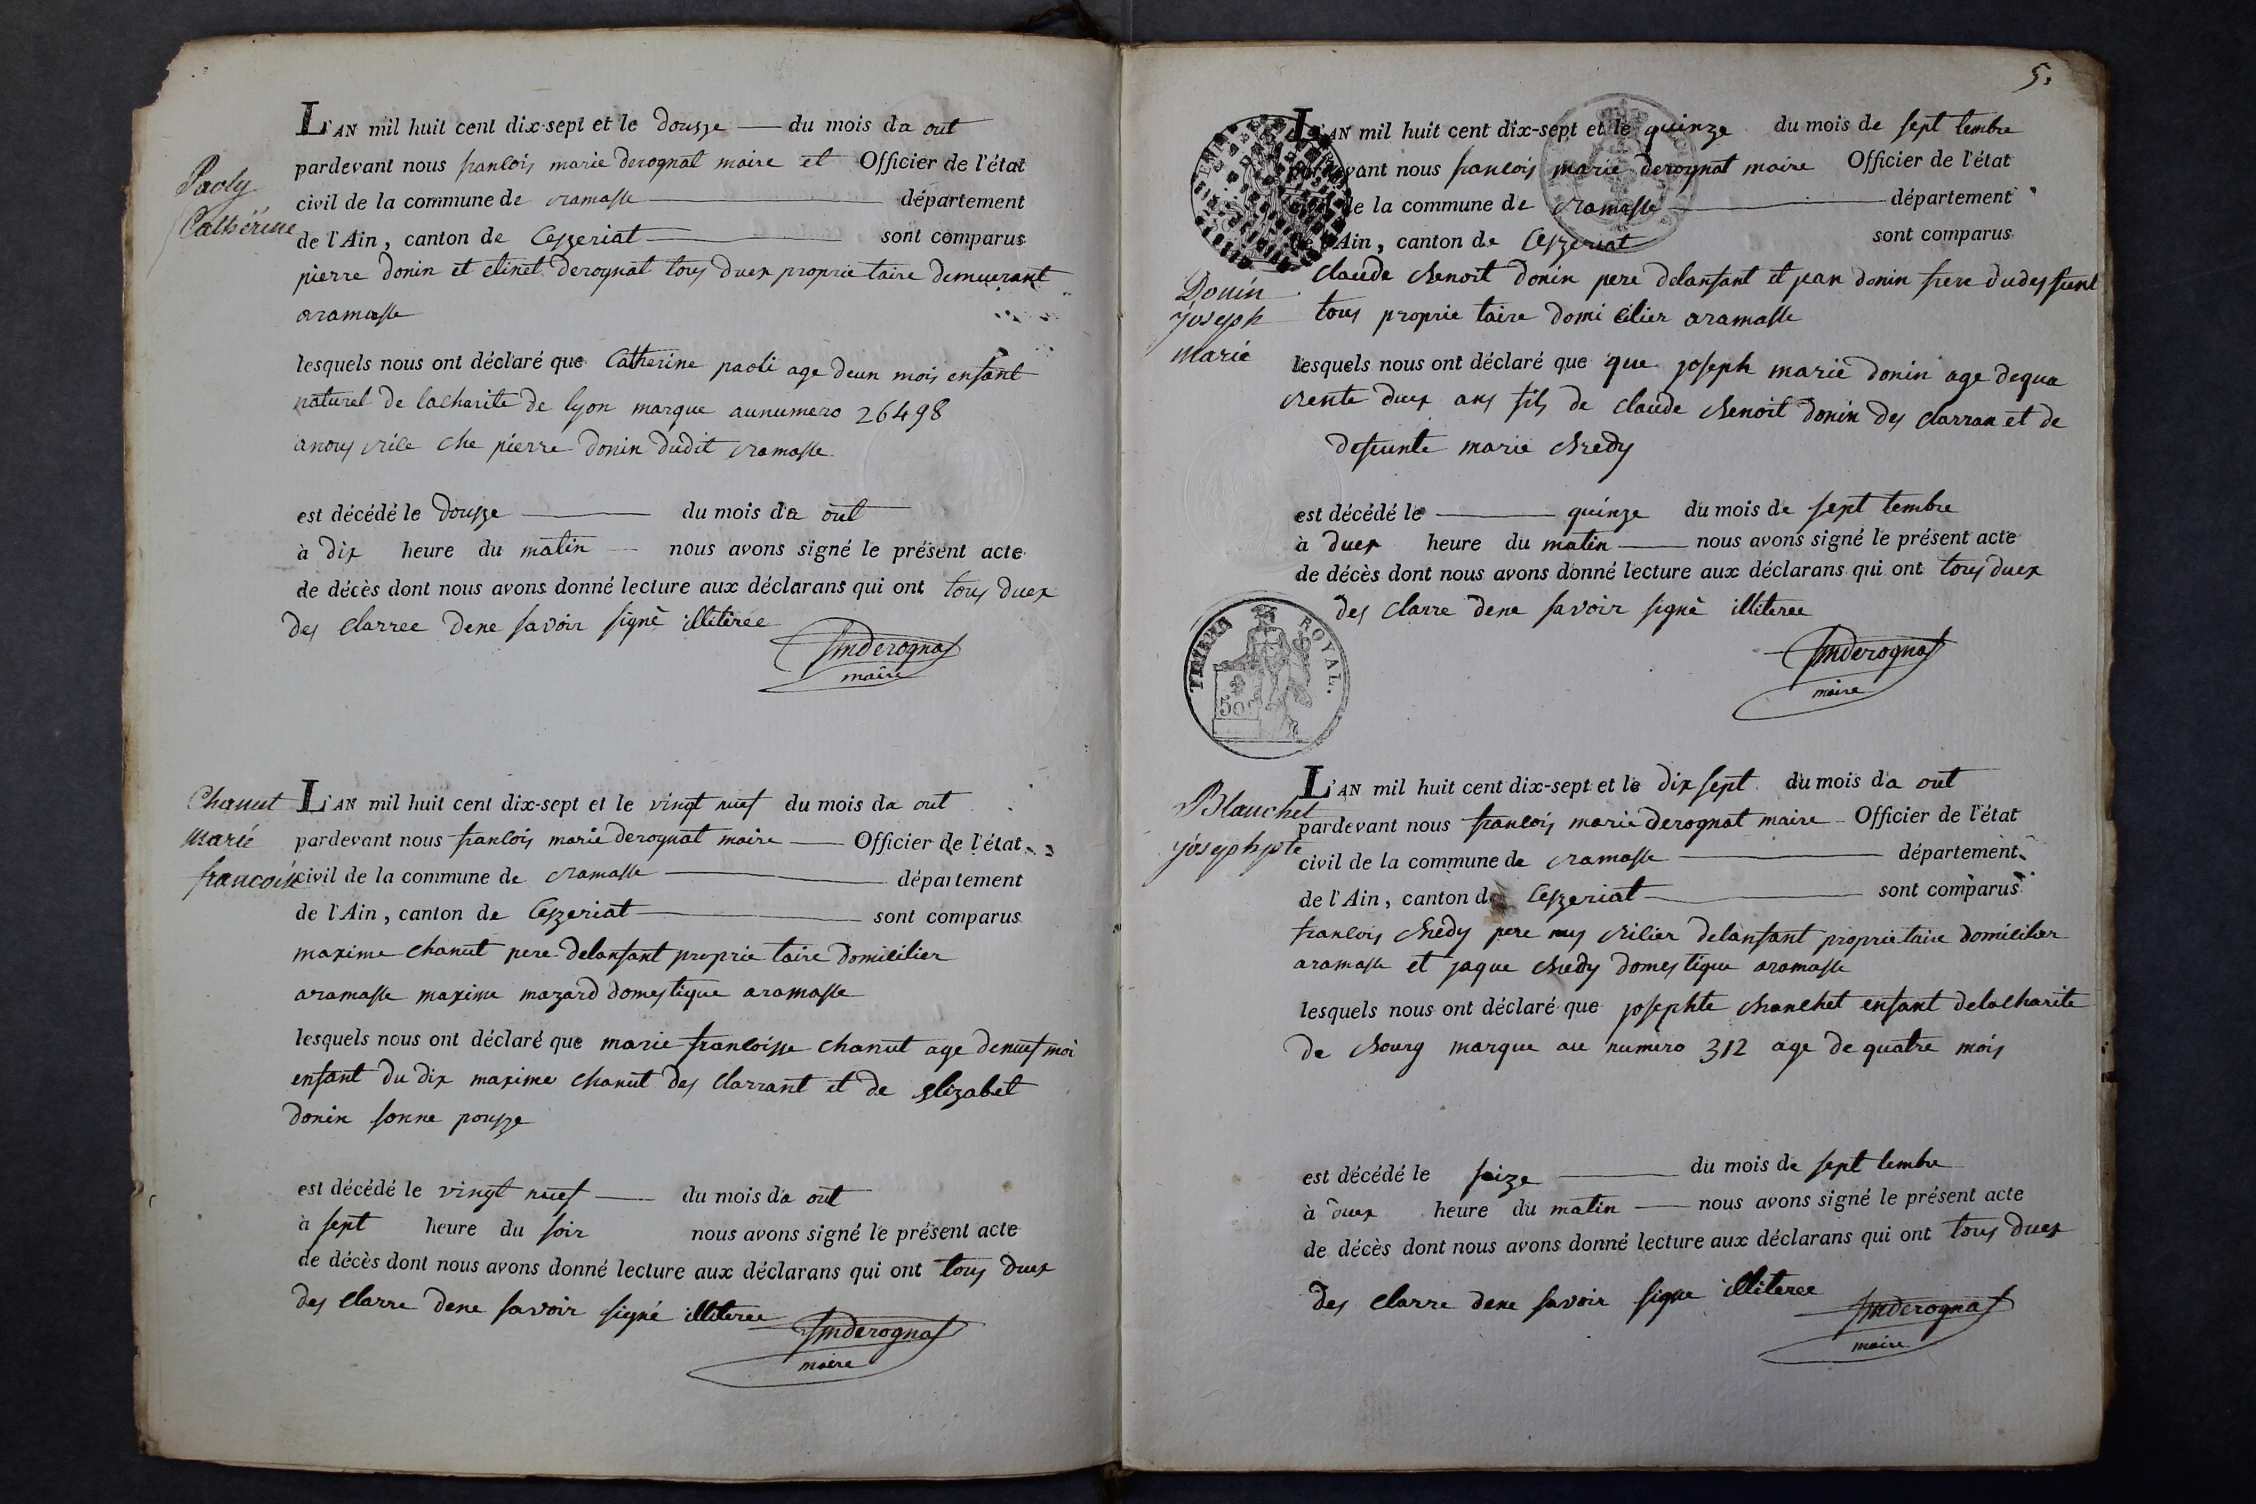 Paoly
Catherine
L'AN mil huit cent dix-sept et le dousze du mois da out
pardevant nous francois marie derognat maire et Officier de l'état
civil de la commune de ramasse département
de l'Ain, canton de Cezeriat sont comparus
pierre donin et clinet derognat tous duex proprie taire demuerant
aramasse
lesquels nous ont déclaré que Catherine paoli age deun mois enfant
naturel de lacharite de lyon marque aunumero 26498
anous rile che pierre donin dudit ramasse
est décédé le dousze du mois da out
à dix heure du matin nous avons signé le présent acte
de décès dont nous avons donné lecture aux déclarans qui ont tous duex
des clarree dene savoir signè illiterée
fmderognat
maire
Chanut
marie
francoise
L'AN mil huit cent dix-sept et le vingt nuef du mois da out
pardevant nous francois marie derognat maire Officier de l'état
civil de la commune de ramasse département
de l'Ain, canton de Cezeriat sont comparus
maxime chanut pere delanfant proprie taire domicilier
aramasse maxime mazard domestique aramasse
lesquels nous ont déclaré que marie francoisse chanut age denuef moi
enfant du dix maxime chanut des clarrant et de elizabet
donin sonne pousze
est décédé le vingt nuef du mois da out
à sept heure du soir nous avons signé le présent acte
de décès dont nous avons donné lecture aux déclarans qui ont tous duex
des clarre dene savoir signé illiteree
fmderognat
maire
5.
L'AN mil huit cent dix-sept et le quinze du mois de sept tembre
pardevant nous francois marie derognat maire Officier de l'état
civil de la commune de ramasse département
de l'Ain, canton de Cezeriat sont comparus
Donin
joseph
marie
claude benoit donin pere delanfant et jean donin frere dudesfunt
tous proprie taire domi cilier aramasse
lesquels nous ont déclaré que que joseph marie donin age dequa
rente duex ans fils de claude benoit donin des clarran et de
defeunte marie bredy
est décédé le quinze du mois de sept tembre
à duex heure du matin nous avons signé le présent acte
de décès dont nous avons donné lecture aux déclarans qui ont tous duex
des clarre dene savoir signè illiteree
TIMBRE ROYAL.
50
fmderognat
maire
Blanchet
josephte
L'AN mil huit cent dix-sept et le dix sept du mois da out
pardevant nous francois marie derognat maire Officier de l'état
civil de la commune de ramasse département
de l'Ain, canton de Cezeriat sont comparus
francois bredy pere nus rilier delanfant proprietaire domicilier
aramasse et jaque bredy domestique aramasse
lesquels nous ont déclaré que josephte blanchet enfant delacharite
de bourg marque au numero 312 age de quatre mois
est décédé le seize du mois de sept tembre
à duex heure du matin nous avons signé le présent acte
de décès dont nous avons donné lecture aux déclarans qui ont tous duex
des clarre dene savoir signe illiteree
fmderognat
maire